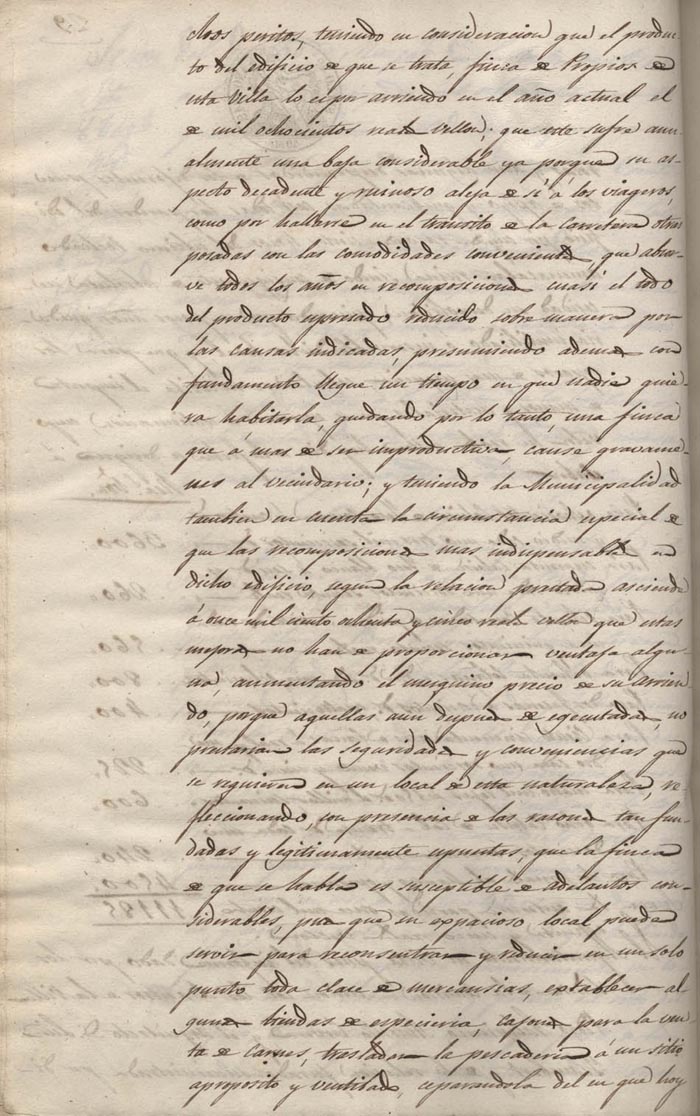 chos peritos, teniendo en consideracion que el produc-
to del edificio de que se trata, finca de Propios de
esta Villa lo es por arriendo en el año actual el
de mil ochocientos reales vellon; que este sufre anu-
almente una baja considerable ya porque su as-
pecto decadente y ruinoso aleja de sí á los viageros,
como por hallarse en el transito de la carretera otras
posadas con las comodidades convenientes, que absor-
ve todos los años en recomposiciones cuasi el todo
del producto espresado reducido sobre manera por
las causas indicadas, presumiendo ademas con
fundamento llegue un tiempo en que nadie quie-
ra habitarla, quedando por lo tanto, una finca
que á mas de ser improductiva, cause gravame-
nes al vecindario; y teniendo la Municipalidad
tambien en cuenta la circunstancia especial de
que las recomposiciones mas indispensables en
dicho edificio, segun la relacion prestada asciende
á once mil ciento ochenta y cinco reales vellon que estas
mejoras no han de proporcionar ventaja algu-
na, aumentando el mezquino precio de su arrien
do, porque aquellas aun despues de egecutadas, no
prestarian las seguridades y conveniencias que
se requieren en un local de esta naturaleza, re-
fleccionando, con presencia de las razones tan fun-
dadas y legitimamente espuestas, que la finca
de que se habla es susceptible de adelantos con-
siderables, pues que su espacioso local puede
servir para reconsentrar y reducir en un solo
punto toda clase de mercansias, establecer al
gunas tiendas de especieria, cajones para la ven-
ta de carnes, trasladar la pescaderia á un sitio
aproposito y ventilado, separandola del en que hoy
2600.
260.
360.
800.
400.
600.
240.
4500.
11185